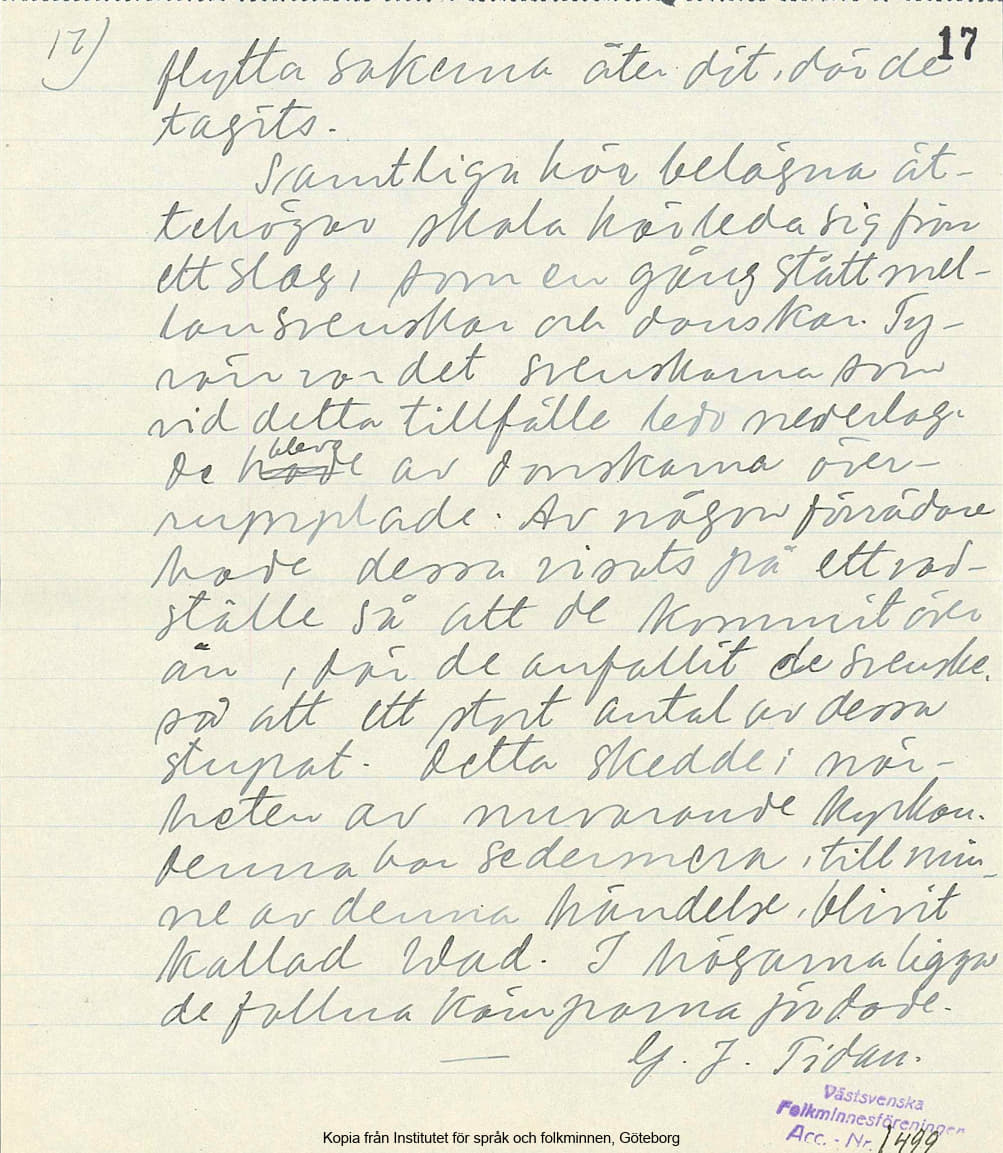 17)
17
flytta sakerna åter dit, där de
tagits.
Samtliga här belägna ät-
tehögar skola härleda sig från
ett slag, som en gång stått mel-
lan svenskar och danskar. Ty-
värr var det svenskarna som
vid detta tillfälle ledo nederlag.
De hade blevo av danskarna över-
rumplade. Av någon förrädare
hade dessa visats på ett vad-
ställe så att de kommit över
ån, där de anfallit de svenske,
så att ett stort antal av dessa
stupat. Detta skedde i när-
heten av nuvarande kyrkan.
Denna har sedermera, till min-
ne av denna händelse, blivit
kallad Wad. I högarna ligga
de fallna kämparna jordade.
G. J. Tidan.
Västsvenska
Folkminnesföreningen
Acc. - Nr. 1499
Kopia från Institutet för språk och folkminnen, Göteborg